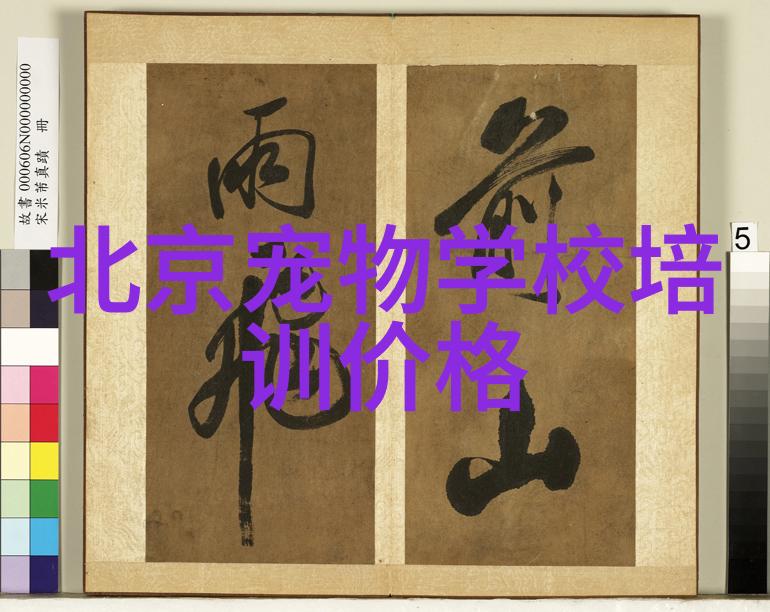 北京宠物学校培
训价格
山
雨飛
故書 000606N000000000
宋米芾真蹟 冊
5